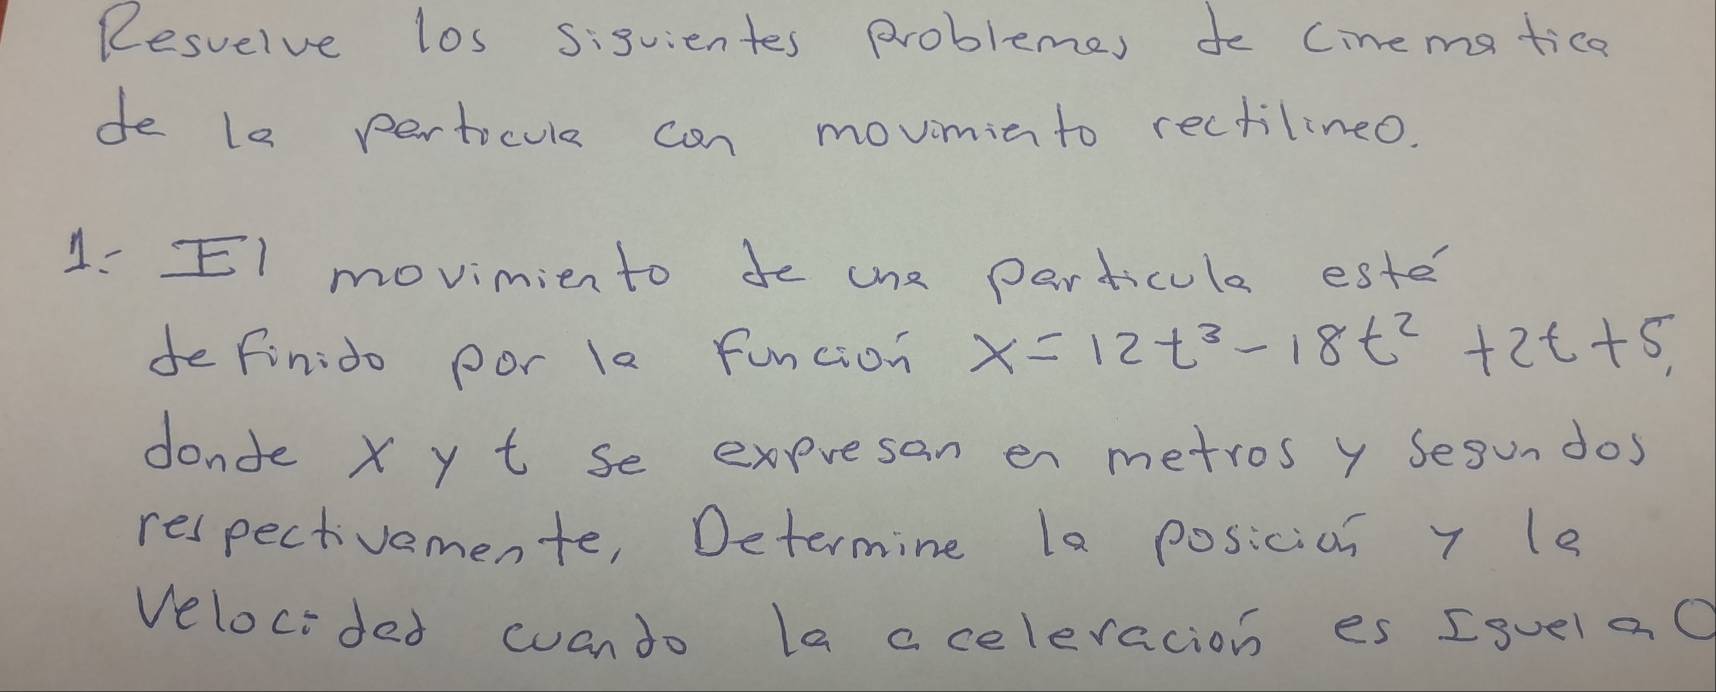 Resuelve los siguientes problemas de cinematica
de la particula con movimiento rectilineo.
1.- El movimiento de una particula está
definido por la función x = 12t³ - 18t² + 2t + 5,
donde x y t se expresan en metros y segundos
respectivamente, Determine la posición y la
velocidad cuando la aceleración es Igual a 0